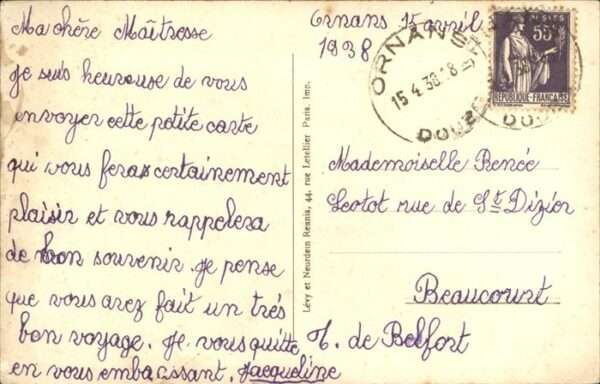 Ma chère Maîtresse
Je suis heureuse de vous
envoyer cette petite carte
qui vous feras certainement
plaisir et vous rappelera
de bon souvenir. Je pense
que vous avez fait un très
bon voyage. Je vous quitte
en vous embrassant. Jacqueline
Ornans 15 avril
1938
ORNANS
15.4.38
DOUBS
POSTES
55c
REPUBLIQUE-FRANÇAISE
DOUBS
Lévy et Neurdein Réunis, 44, rue Letellier Paris. Imp.
Mademoiselle Renée
rue de St Dizier
Beaucourt
T. de Belfort